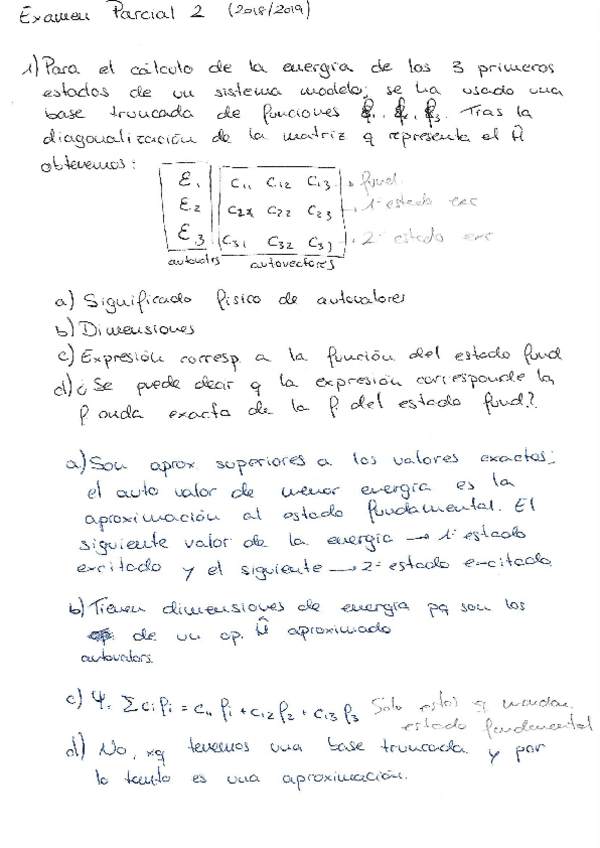 Examen Parcial 2 (2018/2019)
1) Para el cálculo de la energía de los 3 primeros
estados de un sistema modelo; se ha usado una
base truncada de funciones f1, f2, f3. Tras la
diagonalización de la matriz q representa el Ĥ
obtenemos:
ε1 C11 C12 C13 → fund.
ε2 C21 C22 C23 → 1º estado exc
ε3 C31 C32 C33 → 2º estado exc
autovalores autovectores
a) Significado físico de autovalores
b) Dimensiones
c) Expresión corresp. a la función del estado fund
d) ¿Se puede decir q la expresión corresponde la
f onda exacta de la f. del estado fund.?
a) Son aprox. superiores a los valores exactos;
el auto valor de menor energía es la
aproximación al estado fundamental. El
siguiente valor de la energía → 1º estado
excitado y el siguiente → 2º estado excitado.
b) Tienen dimensiones de energía pq son los
de un op. Ĥ aproximado
autovalors.
c) Ψ. Σcifi = C11 f1 + C12 f2 + C13 f3 Solo estos q mandan
estado fundamental
d) No, xq tenemos una base truncada y por
lo tanto es una aproximación.